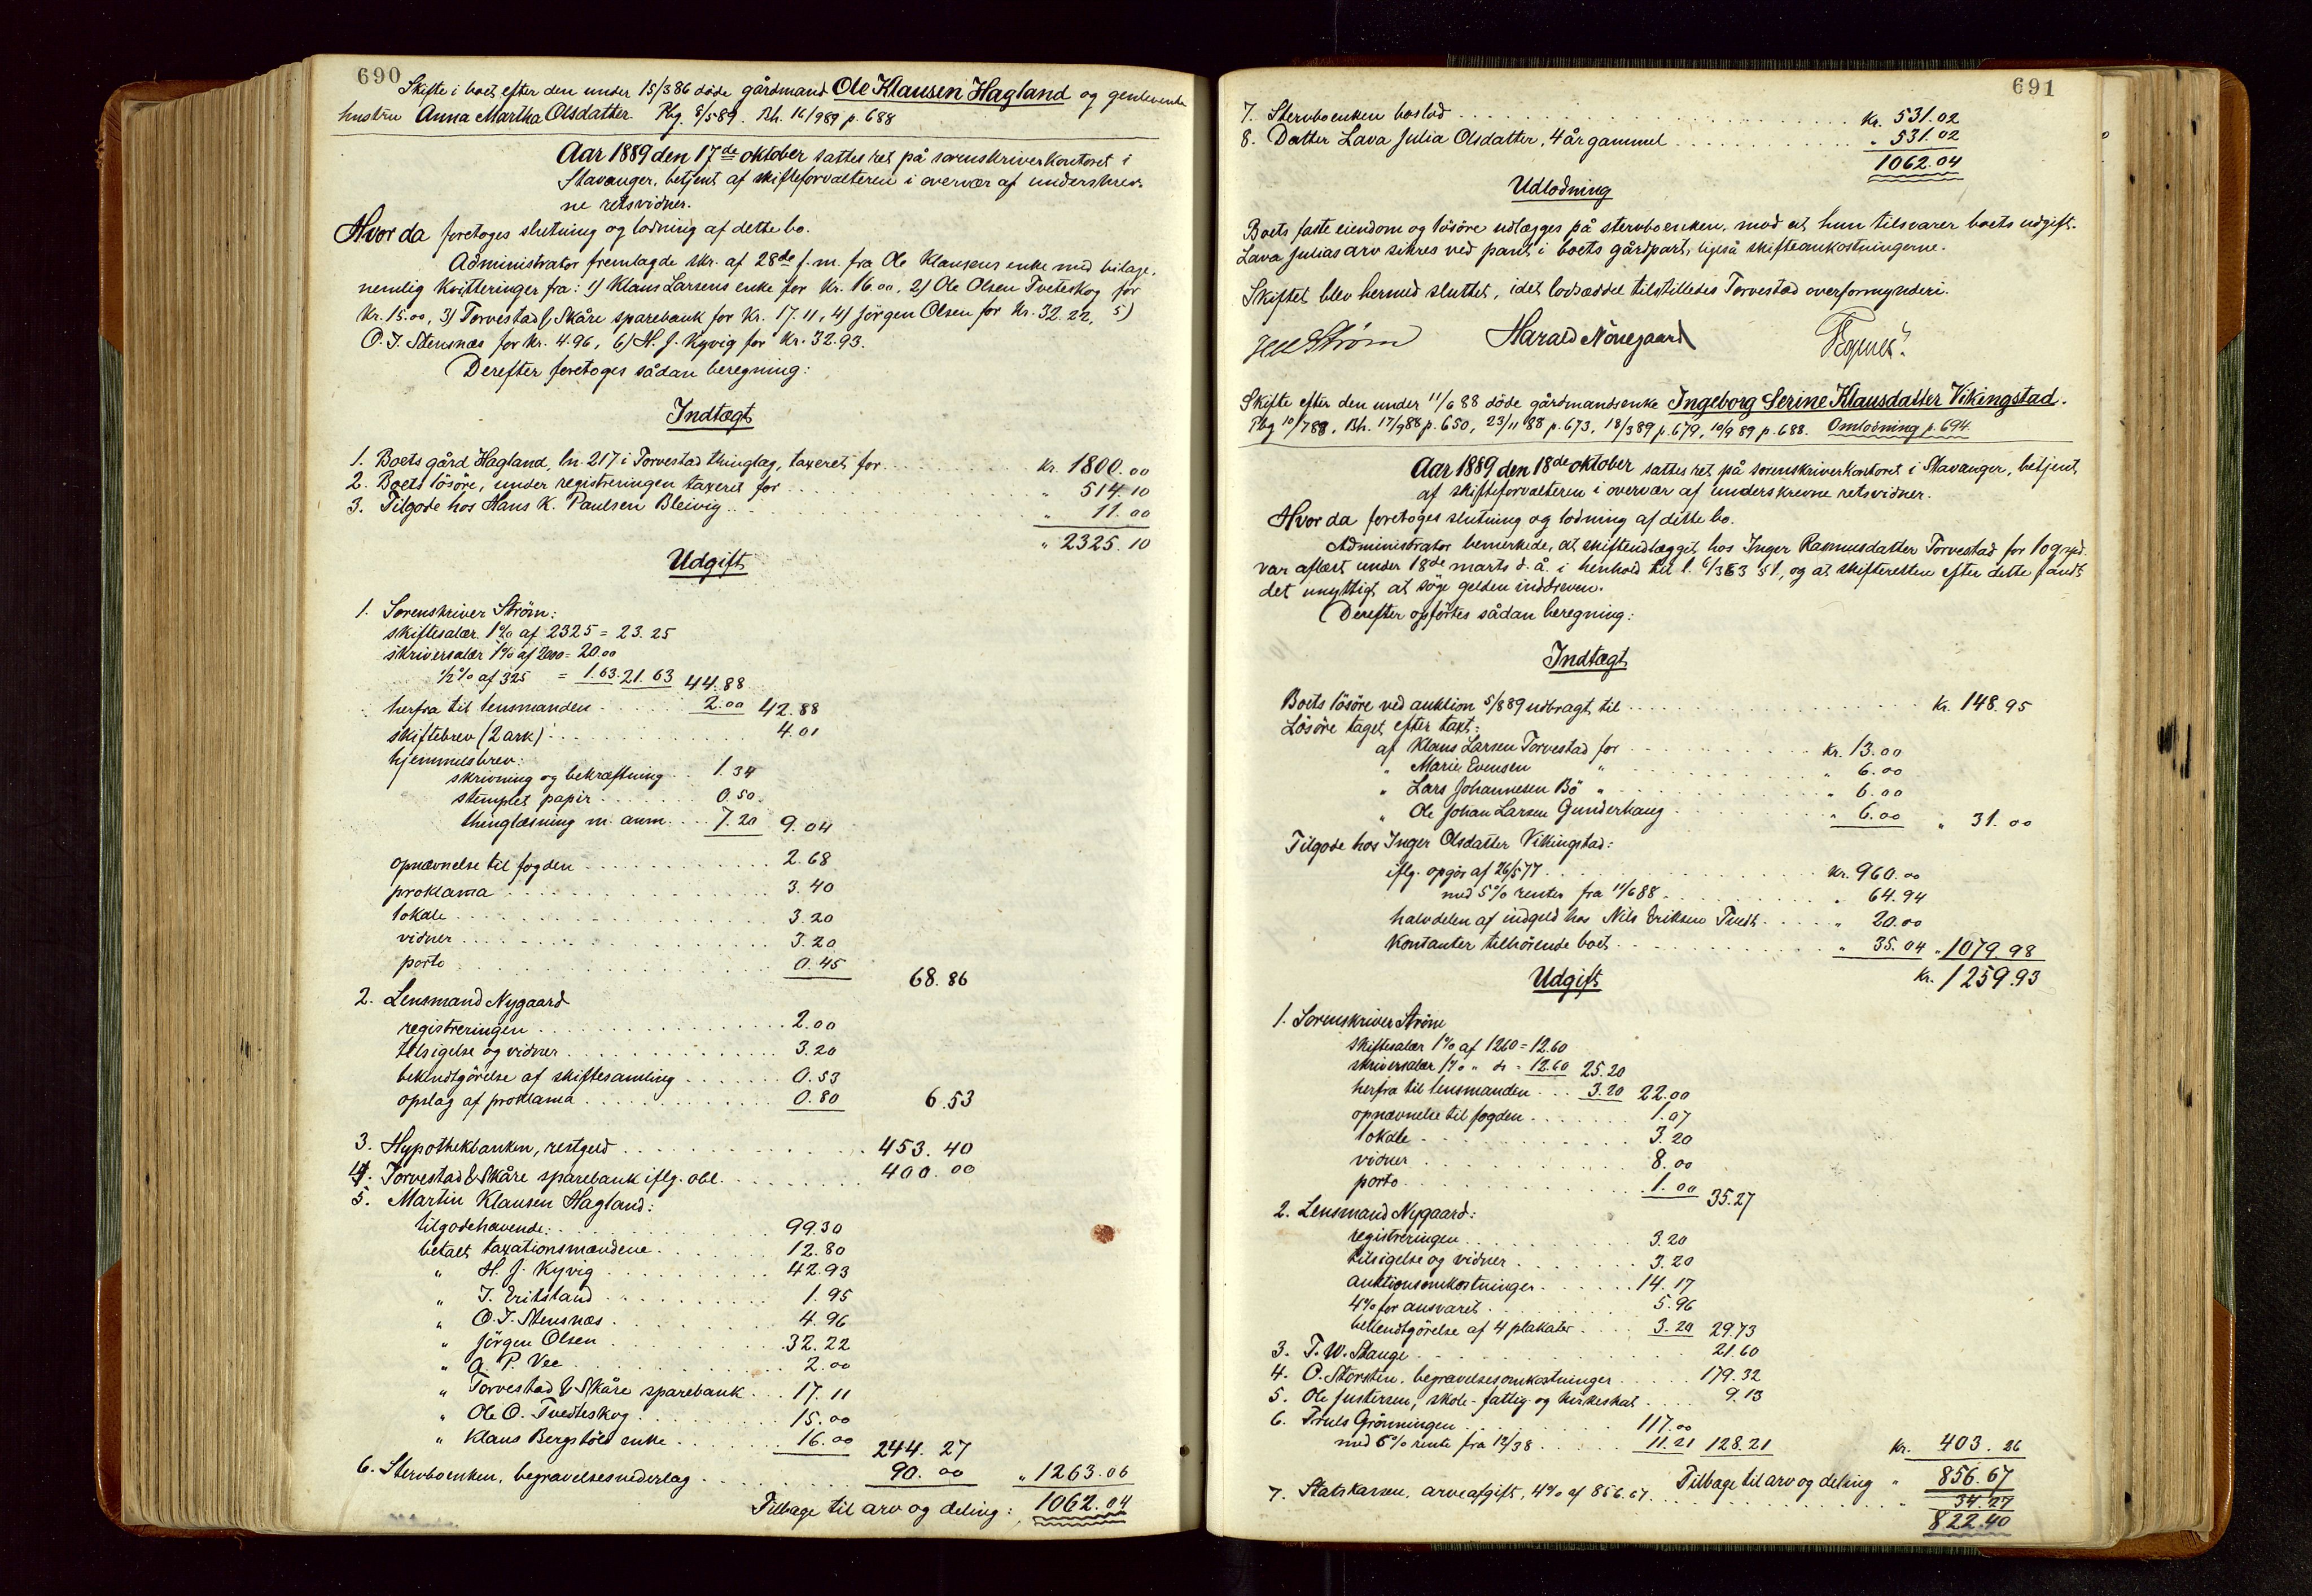 690
Skifte i boet efter den under 15/3 86 döde gårdmand Ole Klausen Hagland og genlevende
hustru Anna Martha Olsdatter. Pbg. 8/5 89. Bh. 16/9 89 p. 688
Aar 1889 den 17de oktober sattes ret på sorenskriverkontoret i
Stavanger, betjent af skifteforvalteren i overvær af underskrev-
ne retsvidner.
Hvor da foretoges slutning og lodning af dette bo.
Administrator fremlagde skr. af 28de f. m. fra Ole Klausens enke med bilage,
nemlig kvitteringer fra: 1) Klaus Larsens enke for kr. 16.00, 2) Ole Olsen Tveteskog for
kr. 15.00, 3) Torvestad & Skåre sparebank for kr. 17.11, 4) Jörgen Olsen for kr. 32.22, 5)
O. T. Stensnæs for kr. 4.96, 6) H. J. Kyvig for kr. 32.93.
Derefter foretoges sådan beregning:
Indtægt
1. Boets gård Hagland, ln. 217 i Torvestad thinglag, taxeret for kr. 1800.00
2. Boets lösöre, under registreringen taxeret for " 514.10
3. Tilgode hos Hans K. Paulsen Bleivig " 11.00
" 2325.10
Udgift
1. Sorenskriver Ström:
skiftesalær 1% af 2325 = 23.25
skriversalær 1% af 2000 = 20.00
1/2% af 325 = 1.63 21.63 44.88
herfra til lensmanden 2.00 42.88
skiftebrev (2 ark) 4.01
hjemmelsbrev:
skrivning og bekræftning 1.34
stemplet papir 0.50
thinglæsning m. anm. 7.20 9.04
opnævnelse til fogden 2.68
proklama 3.40
lokale 3.20
vidner 3.20
porto 0.45 68.86
2. Lensmand Nygaard
registreringen 2.00
tilsigelse og vidner 3.20
bekendtgörelse af skiftesamling 0.53
opslag af proklama 0.80 6.53
3. Hypothekbanken, restgeld 453.40
4. Torvestad & Skåre sparebank iflg. obl. 400.00
5. Martin Klausen Hagland:
tilgodehavende: 99.30
betalt taxationsmændene 12.80
" H. J. Kyvig 42.93
" T. Eritsland 1.95
" O. T. Stensnæs 4.96
" Jörgen Olsen 32.22
" A. P. Vee 2.00
" Torvestad & Skåre sparebank 17.11
" Ole O. Tvedteskog 15.00
" Klaus Bergstöls enke 16.00 244.27
6. Stervboenken, begravelsesvederlag 90.00 " 1263.06
Tilbage til arv og deling: 1062.04
691
7. Stervboenken boslod kr. 531.02
8. Datter Lava Julia Olsdatter, 4 år gammel " 531.02
1062.04
Udlodning
Boets faste eiendom og lösöre udlægges på stervboenken, mod at hun tilsvarer boets udgift.
Lava Julias arv sikres ved pant i boets gårdpart, ligeså skifteomkostningerne.
Skiftet blev hermed sluttet, idet lodseddel tilstilledes Torvestad overformynderi.
Ström Harald Nönegaard
Skifte efter den under 11/6 88 döde gårdmandsenke Ingeborg Serine Klausdatter Vikingstad.
Pbg 10/7 88, Bh. 17/9 88 p. 650, 23/11 88 p. 673, 18/3 89 p. 679, 10/9 89 p. 688. Omlodning p. 694.
Aar 1889 den 18de oktober sattes ret på sorenskriverkontoret i Stavanger, betjent
af skifteforvalteren i overvær af underskrevne retsvidner.
Hvor da foretoges slutning og lodning af dette bo.
Administrator bemerkede, at skifteudlægget hos Inger Rasmusdatter Torvestad for 10
var aflæst under 18de marts d. å. i henhold til l. § 1, og at skifteretten efter dette fandt
det unyttigt at söge gelden inddreven.
Derefter opförtes sådan beregning:
Indtægt
Boets lösöre ved auktion 5/8 89 udbragt til kr. 148.95
Lösöre taget efter taxt:
af Klaus Larsen Torvestad for kr. 13.00
" Marie Evensen " " 6.00
" Lars Johannesen Bö " " 6.00
" Ole Johan Larsen Gunderhaug " 6.00 " 31.00
Tilgode hos Inger Olsdatter Vikingstad:
iflg. opgör af 26/5 77 kr. 960.00
med 5% renter fra 11/6 88 " 64.94
halvdelen af indgeld hos Nils Eriksen Tvedt " 20.00
kontanter tilhörende boet " 35.04 " 1079.98
Udgift kr. 1259.93
1. Sorenskriver Ström
skiftesalær 1% af 1260 = 12.60
skriversalær 1% " do = 12.60 25.20
herfra til lensmanden 3.20 22.00
opnævnelse til fogden 1.07
lokale 3.20
vidner 8.00
porto 1.00 35.27
2. Lensmand Nygaard:
registreringen 3.20
tilsigelse og vidner 3.20
auktionsomkostninger 14.17
4% for ansvaret 5.96
bekendtgörelse af 4 plakater 3.20 29.73
3. T. W. Stange 21.60
4. O. Storsten, begravelsesomkostninger 179.32
5. Ole Justersen, skole- fattig- og kirkeskat 9.13
6. Truls Grönningen 117.00
med 5% rente fra 12/38 11.21 128.21 kr. 403.26
Tilbage til arv og deling " 856.67
7. Statskassen, arveafgift, 4% af 856.67 " 34.27
822.40